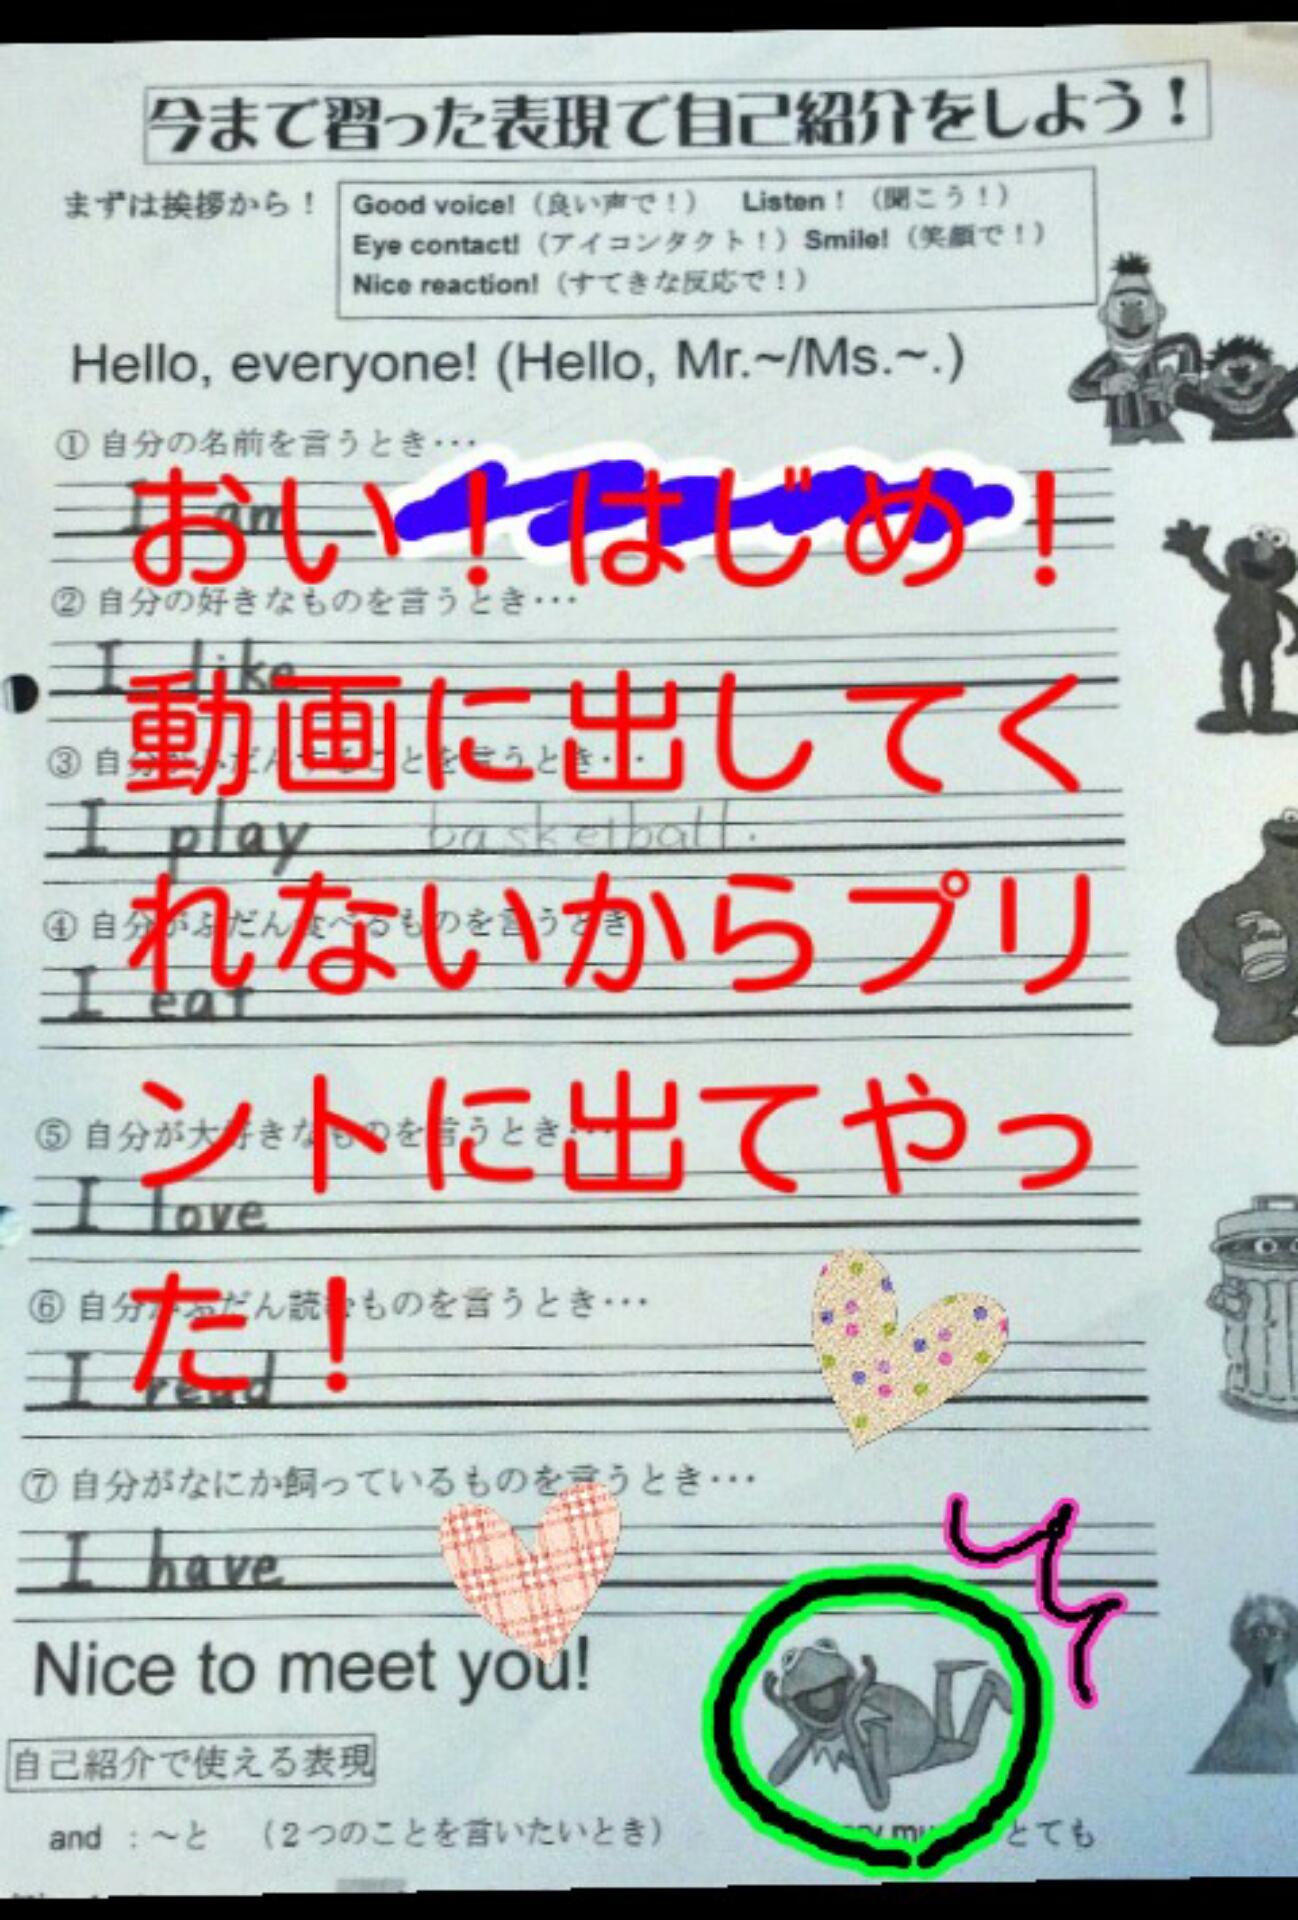 今まで習った表現で自己紹介をしよう！
まずは挨拶から！
Good voice!（良い声で！） Listen！（聞こう！）
Eye contact!（アイコンタクト！）Smile!（笑顔で！）
Nice reaction!（すてきな反応で！）
Hello, everyone! (Hello, Mr.~/Ms.~.)
①自分の名前を言うとき･･･
I am
おい！はじめ！
②自分の好きなものを言うとき･･･
I like
動画に出してく
③自分がふだんすることを言うとき･･･
I play basketball.
れないからプリ
④自分がふだん食べるものを言うとき
I eat
ントに出てやっ
⑤自分が大好きなものを言うとき･･･
I love
た！
⑥自分がふだん読むものを言うとき･･･
I read
⑦自分がなにか飼っているものを言うとき･･･
I have
Nice to meet you!
自己紹介で使える表現
and ：～と （２つのことを言いたいとき） とても